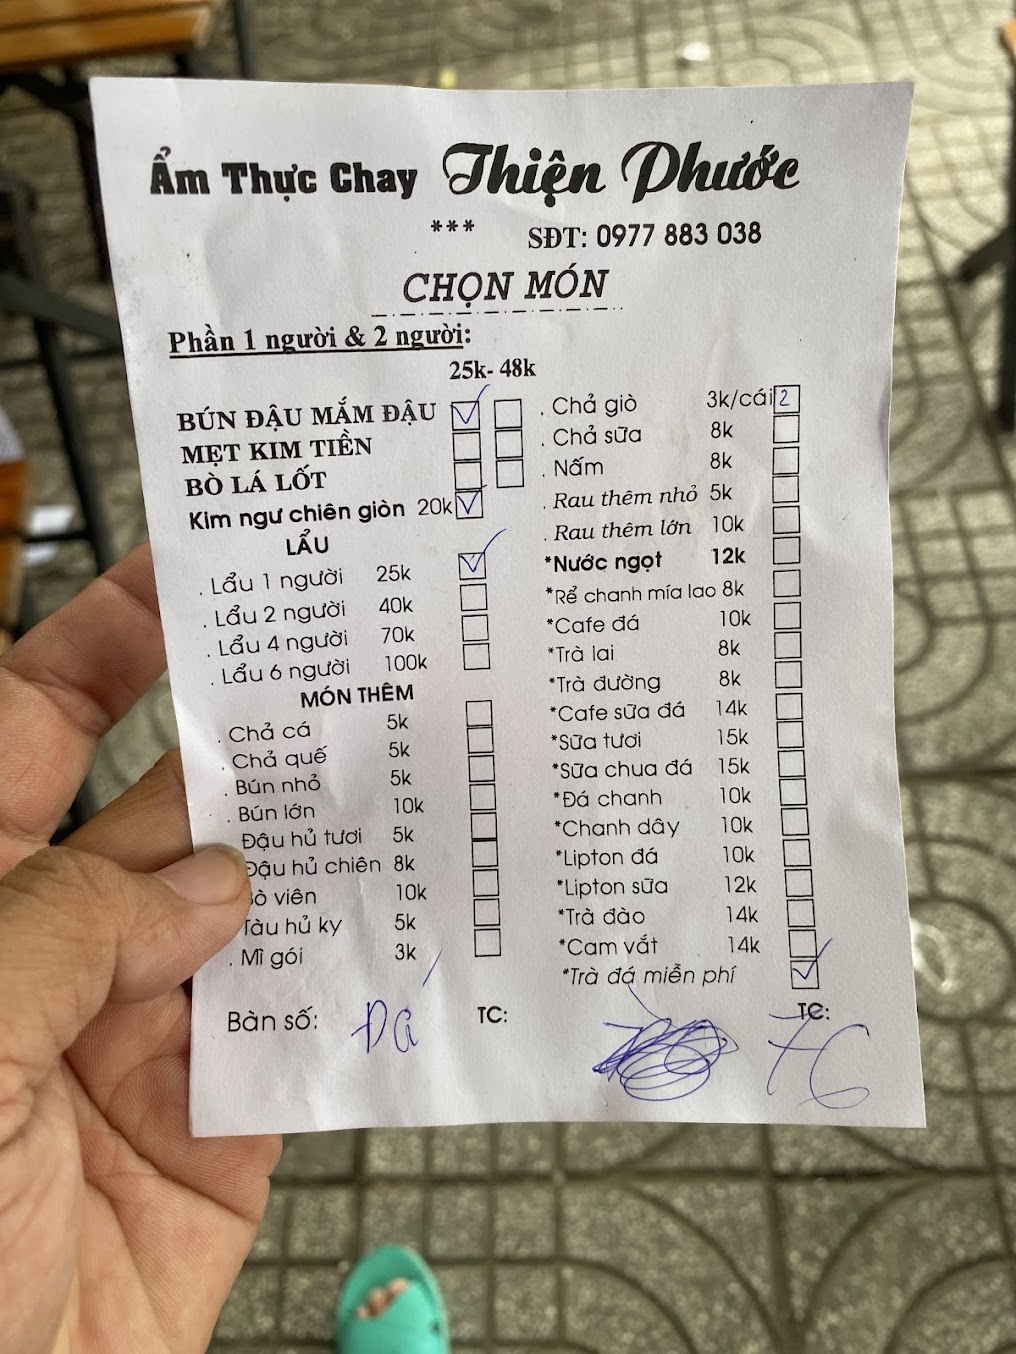 Ẩm Thực Chay Thiện Phước
*** SĐT: 0977 883 038
CHỌN MÓN
Phần 1 người & 2 người:
25k- 48k
BÚN ĐẬU MẮM ĐẬU
MẸT KIM TIỀN
BÒ LÁ LỐT
Kim ngư chiên giòn 20k
LẨU
. Lẩu 1 người 25k
. Lẩu 2 người 40k
. Lẩu 4 người 70k
. Lẩu 6 người 100k
MÓN THÊM
. Chả cá 5k
. Chả quế 5k
. Bún nhỏ 5k
. Bún lớn 10k
Đậu hủ tươi 5k
Đậu hủ chiên 8k
Bò viên 10k
Tàu hủ ky 5k
. Mì gói 3k
. Chả giò 3k/cái 2
. Chả sữa 8k
. Nấm 8k
. Rau thêm nhỏ 5k
. Rau thêm lớn 10k
*Nước ngọt 12k
*Rể chanh mía lao 8k
*Cafe đá 10k
*Trà lai 8k
*Trà đường 8k
*Cafe sữa đá 14k
*Sữa tươi 15k
*Sữa chua đá 15k
*Đá chanh 10k
*Chanh dây 10k
*Lipton đá 10k
*Lipton sữa 12k
*Trà đào 14k
*Cam vắt 14k
*Trà đá miễn phí
Bàn số: Đá TC: TC:
76